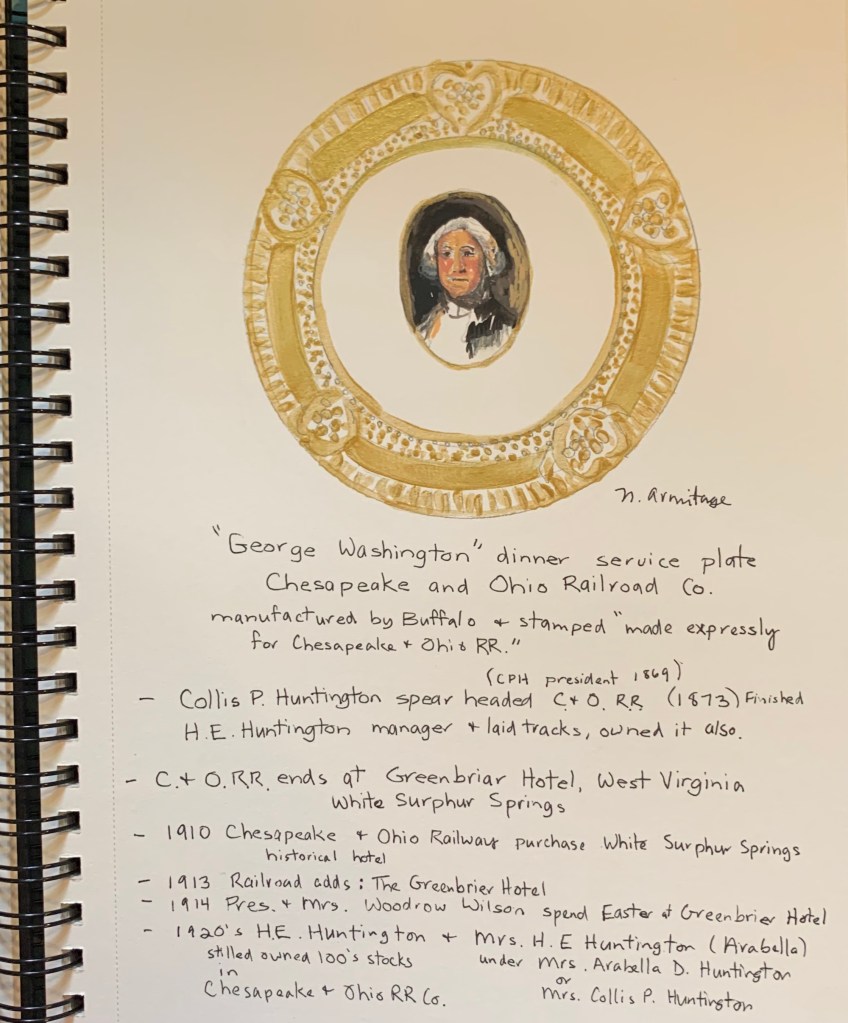 N. Armitage
"George Washington" dinner service plate
Chesapeake and Ohio Railroad Co.
manufactured by Buffalo + stamped "made expressly
for Chesapeake + Ohio RR."
(CPH president 1869)
- Collis P. Huntington spear headed C.+ O. RR. (1873) Finished
H.E. Huntington manager + laid tracks, owned it also.
- C.+ O.RR. ends at Greenbriar Hotel, West Virginia
White Surphur Springs
- 1910 Chesapeake + Ohio Railway purchase White Surphur Springs
historical hotel
- 1913 Railroad adds: The Greenbrier Hotel
- 1914 Pres. + Mrs. Woodrow Wilson spend Easter at Greenbrier Hotel
- 1920's H.E. Huntington + Mrs. H.E Huntington (Arabella)
stilled owned 100's stocks under Mrs. Arabella D. Huntington
in or
Chesapeake + Ohio RR Co. Mrs. Collis P. Huntington